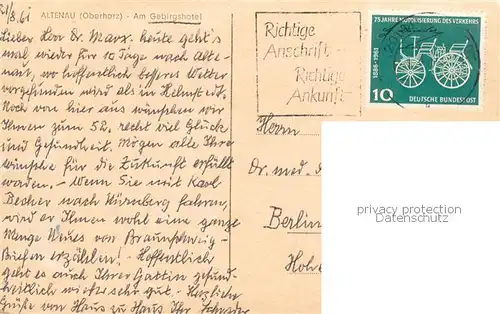 21/8.61
ALTENAU (Oberharz) - Am Gebirgshotel
Lieber Herr Dr. Marx. heute geht's
mal wieder für 10 Tage nach Alte-
nau, wo hoffentlich besseres Wetter
vorgefunden wird als in Helmstedt.
Noch von hier aus wünschen wir
Ihnen zum 52. recht viel Glück
und Gesundheit. Mögen alle Ihre
Wünsche für die Zukunft erfüllt
werden. - Wenn Sie mit Karl
Becher nach Nürnberg fahren,
wird er Ihnen wohl eine ganze
Menge Neues von Braunschweig-
erzählen! - Hoffentlich
geht es auch Ihrer Gattin gesund-
heitlich wieder sehr gut. - Herzliche
Grüße von Haus zu Haus Ihr
Richtige
Anschrift
Richtige
Ankunft
75 JAHRE MOTORISIERUNG DES VERKEHRS
1886-1961
10
DEUTSCHE BUNDESPOST
Herrn
Dr. med. d
Berlin
Hohe
privacy protection
Datenschutz